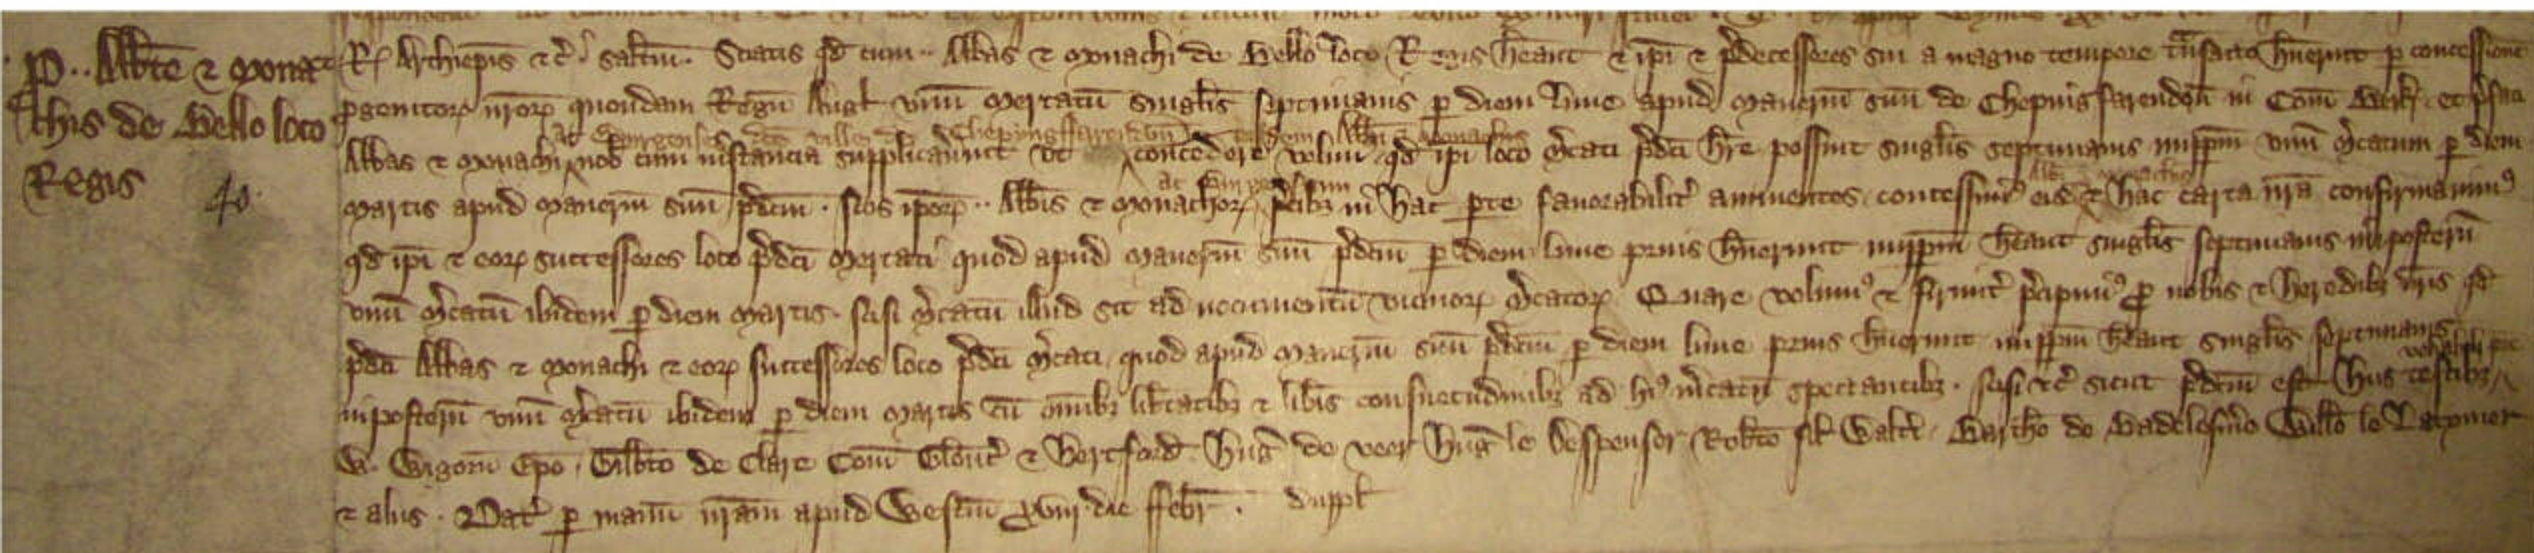 P .. Abb̄te ⁊ monachis de Bello loco Regis
40
R̃ Archiep̄is ⁊c̄ saltm̄. Sciatis qd̄ cum .. Abbas ⁊ monachi de Bello loco Regis h̄eant ⁊ ip̄i ⁊ p̄decessores sui a magno tempore t̃nsacto h̄uerint p concessionē
p̱genitoꝝ nr̄oꝝ quondam Regū Angl̄ vnū mercatū singlīs septimanis p diem lune apud maneriū suū de Chepingfarendon in Com̄ Berk̄ et p̄fati
ac Burgenses ville de Chepingffarendon eisdem Abb̄i ⁊ monachis
Abbas ⁊ monachi nob̄ cum instancia supplicauerint vt concedere velim̄ qd̄ ip̄i loco m̄cati p̄dc̄i h̄re possint singlīs septimanis imp̱p̱m vnū m̄catum p diem
ac Burgensium
Abb̄i ⁊ monachis
martis apud maneriū suū p̄dc̄m. Nos ip̄oꝝ .. Abb̄is ⁊ monachoꝝ p̄cibꝫ in hac p̱te fauorabilit̄ annuentes concessimꝰ eis ⁊ hac carta nr̄a confirmauimꝰ
qd̄ ip̄i ⁊ eoꝝ successores loco p̄dc̄i mercati quod apud maneriū suū p̄dc̄m p diem lune prius h̄uerunt imp̱p̱m h̄eant singlīs septimanis inposterū
vnū m̄catū ibidem p diem martis. Nisi m̄catū illud sit ad nocumentū vicinoꝝ m̄catoꝝ. Quare volumꝰ ⁊ firmit̄ p̄cipimꝰ p̱ nobis ⁊ heredibꝫ nr̄is qd̄
p̄dc̄i Abbas ⁊ monachi ⁊ eoꝝ successores loco p̄dc̄i m̄cati quod apud maneriū suū p̄dc̄m p diem lune prius h̄uerunt imp̱p̱m h̄eant singlīs septimanis
inposterū vnū m̄catū ibidem p diem martis cū om̄ibꝫ lib̄tatibꝫ ⁊ lib̄is consuetudinibꝫ ad hꝰi m̄catū spectantibꝫ. Nisi ⁊c̄ sicut p̄dc̄m est Hiis testibꝫ
W. Wigorn̄ Ep̄o. Gilb̄to de Clare Com̄ Glouc̄ ⁊ Hertford̄. Hug̃ de veer Hug̃ le Despenser Rob̄to fil̄ Walt̄i. Barth̄o de Badelesm̄e Will̄o le Latymer
⁊ aliis. Dat̄ p manū nr̄am apud Westm̄ xviij. die ffebr̄. dupp̱l̄